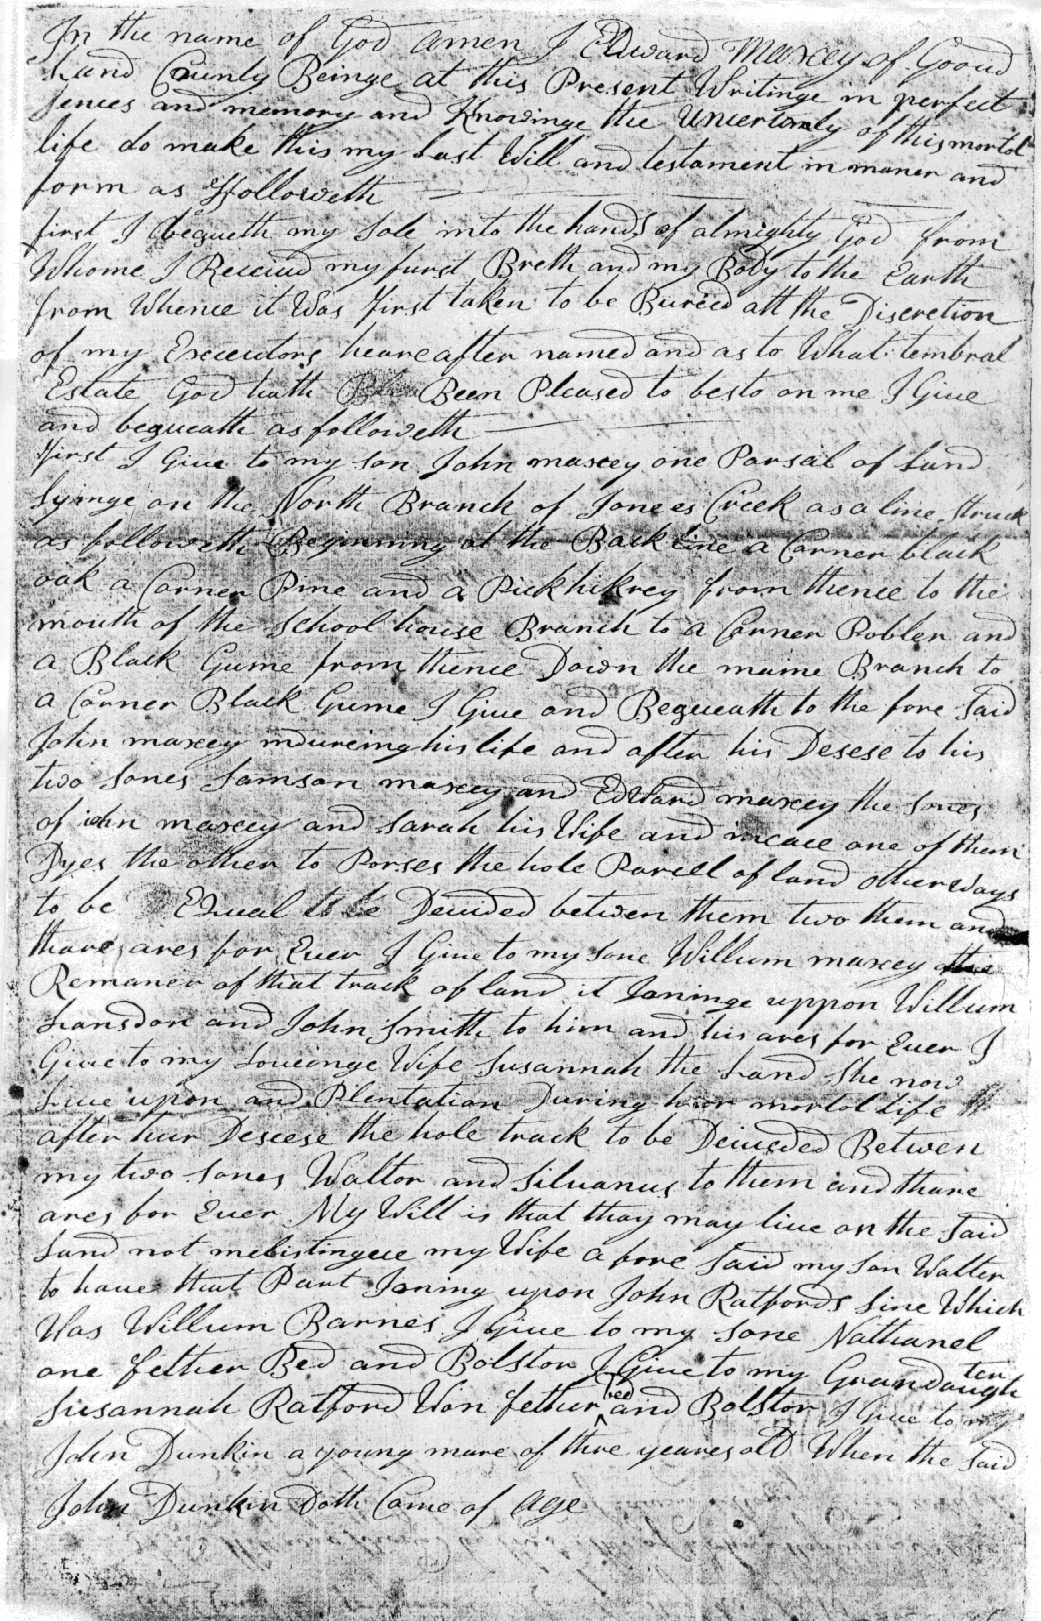 In the name of God amen I Edward Maxcey of Gooud
Land County Beinge at this Present Writinge in perfect
sences and memory and Knowinge the Uncertanly of this mortol
life do make this my Last Will and testament in maner and
form as ffolloweth
first I bequeth my Sole into the hands of almighty God from
Whome I Receiud my furst Breth and my Body to the Earth
from Whence it Was first taken to be Buried att the Discretion
of my Executors heareafter named and as to What tembral
Estate God hath Been Pleased to besto on me I Giue
and bequeath as followeth
first I Giue to my son John maxcey one Parsal of Land
Lyinge on the North Branch of Jonees Creek as a line Struck
as followeth Beginning at the Back Line a Corner black
oak a Corner Pine and a Pickhikrey from thence to the
mouth of the School house Branch to a Corner Pobler and
a Black Gume from thence Down the maine Branch to
a Corner Black Gume I Giue and Bequeath to the fore Said
John maxcey indureing his life and after his Desese to his
two Sones Samson maxcey and Edward maxcey the Sones
of iohn maxcey and Sarah his Wife and incace one of them
Dyes the other to Porses the hole Parcell of land otherways
to be Equal to be Deuided betwen them two them and
thare ares for Euer I Giue to my Sone Willum maxcey the
Remaner of that track of land it Joninge uppon Willum
Lansdon and John Smith to him and his ares for Euer I
Giue to my Loueinge Wife Susannah the Land She now
Liue upon and Plentation During hear mortol Life
after hur Descese the hole track to be Deiueded Betwen
my two Sones Waltor and Siluanus to them and thare
ares for Euer My Will is that thay may liue on the Said
Land not melistingeue my Wife a fore Said my Son Walter
to haue that Paut Joning upon John Ratfords Line Which
Was Willum Barnes I Giue to my Sone Nathanel
one fether Bed and Bolstor I Giue to my Grandaughter
Susannah Ratford Won fethur bed and Bolstor I Giue to my
John Dunkin a young mare of thre yeares old When the Said
John Dunkin Doth Come of Age